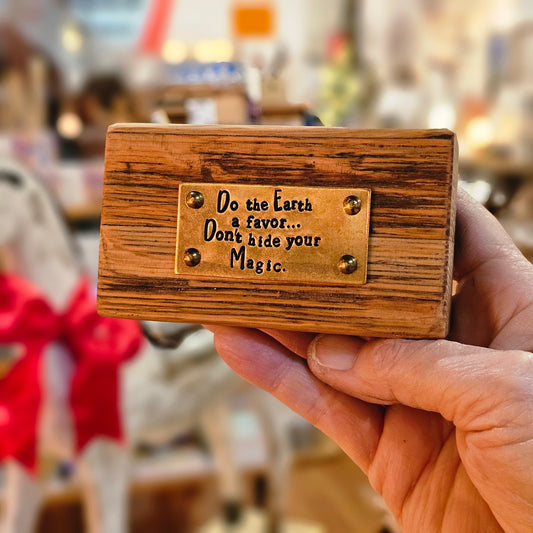 Do the Earth
a favor...
Don't hide your
Magic.